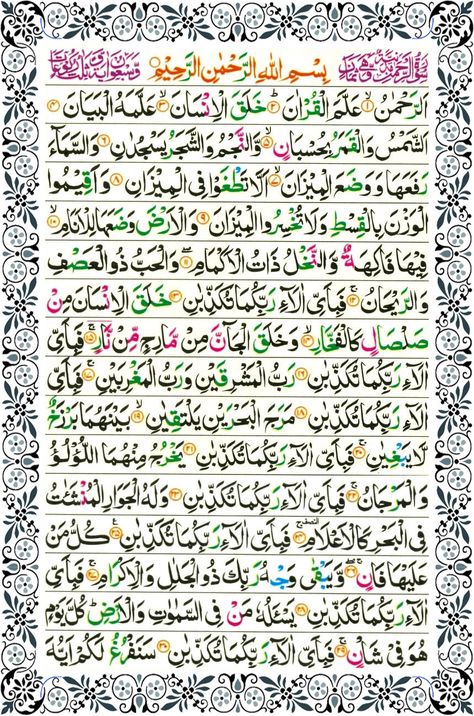 بِسْمِ اللّٰهِ الرَّحْمٰنِ الرَّحِيْمِ
اَلرَّحْمٰنُ ۙ﴿۱﴾ عَلَّمَ الْقُرْاٰنَ ؕ﴿۲﴾ خَلَقَ الْاِنْسَانَ ۙ﴿۳﴾ عَلَّمَهُ الْبَيَانَ ﴿۴﴾
اَلشَّمْسُ وَالْقَمَرُ بِحُسْبَانٍ ﴿۵﴾ وَّالنَّجْمُ وَالشَّجَرُ يَسْجُدٰنِ ﴿۶﴾ وَالسَّمَآءَ
رَفَعَهَا وَوَضَعَ الْمِيْزَانَ ۙ﴿۷﴾ اَلَّا تَطْغَوْا فِى الْمِيْزَانِ ﴿۸﴾ وَاَقِيْمُوا
الْوَزْنَ بِالْقِسْطِ وَلَا تُخْسِرُوا الْمِيْزَانَ ﴿۹﴾ وَالْاَرْضَ وَضَعَهَا لِلْاَنَامِ ۙ﴿۱۰﴾
فِيْهَا فَاكِهَةٌ وَّالنَّخْلُ ذَاتُ الْاَكْمَامِ ۖ﴿۱۱﴾ وَالْحَبُّ ذُو الْعَصْفِ
وَالرَّيْحَانُ ۚ﴿۱۲﴾ فَبِاَىِّ اٰلَآءِ رَبِّكُمَا تُكَذِّبٰنِ ﴿۱۳﴾ خَلَقَ الْاِنْسَانَ مِنْ
صَلْصَالٍ كَالْفَخَّارِ ۙ﴿۱۴﴾ وَخَلَقَ الْجَآنَّ مِنْ مَّارِجٍ مِّنْ نَّارٍ ۚ﴿۱۵﴾ فَبِاَىِّ
اٰلَآءِ رَبِّكُمَا تُكَذِّبٰنِ ﴿۱۶﴾ رَبُّ الْمَشْرِقَيْنِ وَرَبُّ الْمَغْرِبَيْنِ ۚ﴿۱۷﴾ فَبِاَىِّ
اٰلَآءِ رَبِّكُمَا تُكَذِّبٰنِ ﴿۱۸﴾ مَرَجَ الْبَحْرَيْنِ يَلْتَقِيٰنِ ۙ﴿۱۹﴾ بَيْنَهُمَا بَرْزَخٌ
لَّا يَبْغِيٰنِ ۚ﴿۲۰﴾ فَبِاَىِّ اٰلَآءِ رَبِّكُمَا تُكَذِّبٰنِ ﴿۲۱﴾ يَخْرُجُ مِنْهُمَا اللُّؤْلُؤُ
وَالْمَرْجَانُ ۚ﴿۲۲﴾ فَبِاَىِّ اٰلَآءِ رَبِّكُمَا تُكَذِّبٰنِ ﴿۲۳﴾ وَلَهُ الْجَوَارِ الْمُنْشَئٰتُ
فِى الْبَحْرِ كَالْاَعْلَامِ ۚ﴿۲۴﴾ فَبِاَىِّ اٰلَآءِ رَبِّكُمَا تُكَذِّبٰنِ ﴿۲۵﴾ كُلُّ مَنْ
عَلَيْهَا فَانٍ ۚۖ﴿۲۶﴾ وَّيَبْقٰى وَجْهُ رَبِّكَ ذُو الْجَلٰلِ وَالْاِكْرَامِ ۚ﴿۲۷﴾ فَبِاَىِّ
اٰلَآءِ رَبِّكُمَا تُكَذِّبٰنِ ﴿۲۸﴾ يَسْئَلُهٗ مَنْ فِى السَّمٰوٰتِ وَالْاَرْضِ ؕ كُلَّ يَوْمٍ
هُوَ فِىْ شَاْنٍ ۚ﴿۲۹﴾ فَبِاَىِّ اٰلَآءِ رَبِّكُمَا تُكَذِّبٰنِ ﴿۳۰﴾ سَنَفْرُغُ لَكُمْ اَيُّهَ